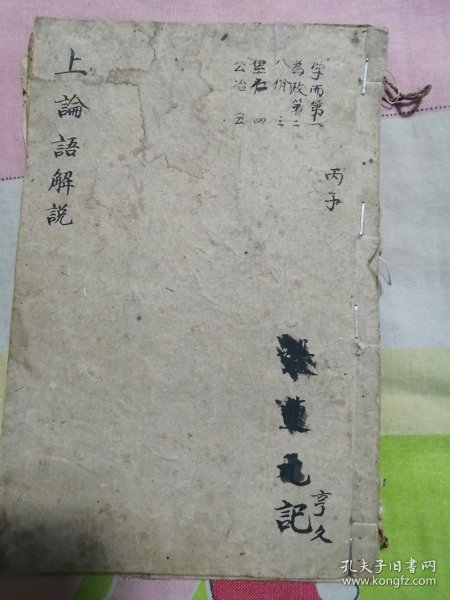 上論語解説
學而第一
為政第二
八佾 三
里仁 四
公冶 五
丙子
記
亨久
孔夫子旧书网
www.kongfz.com